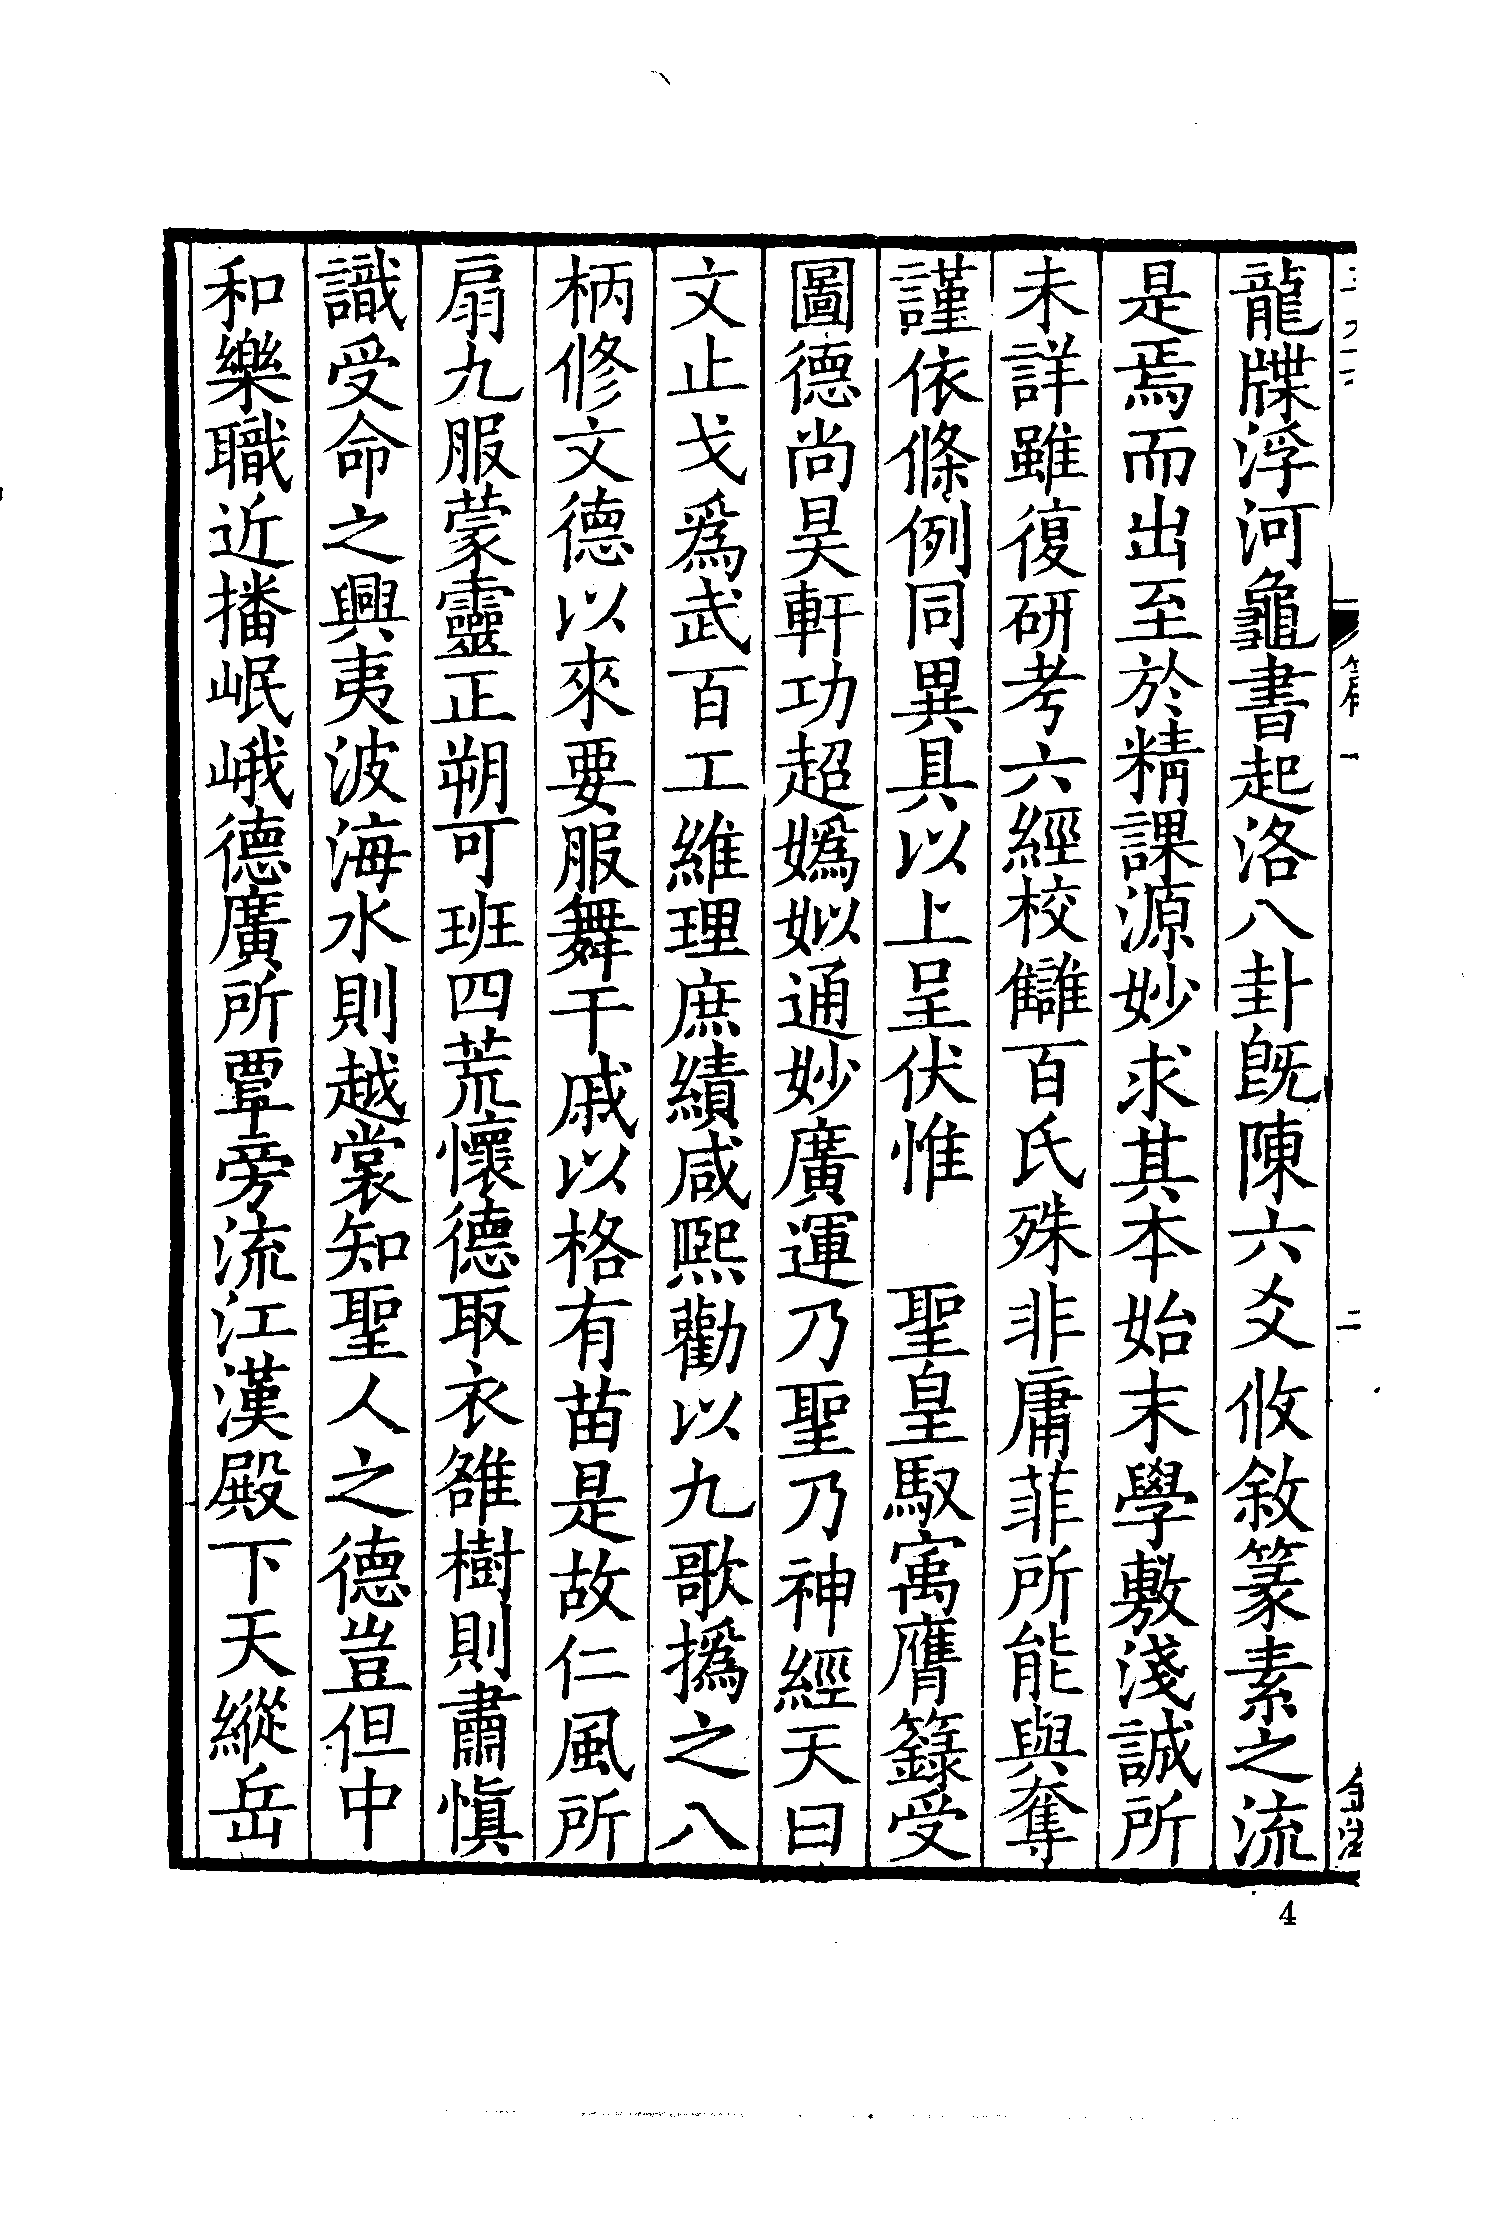 龍牒浮河龜書起洛八卦旣陳六爻攸敘篆素之流
是焉而出至於精課源妙求其本始末學敷淺誠所
未詳雖復研考六經校讎百氏殊非庸菲所能與奪
謹依條例同異具以上呈伏惟　聖皇馭㝢膺籙受
圖德尚昊軒功超嬀姒通妙廣運乃聖乃神經天曰
文止戈爲武百工維理庶績咸熙勸以九歌撝之八
柄修文德以來要服舞干戚以格有苗是故仁風所
扇九服蒙靈正朔可班四荒懷德取衣雒樹則肅愼
識受命之興夷波海水則越裳知聖人之德豈但中
和樂職近播岷峨德廣所覃旁流江漢殿下天縱岳
二
4